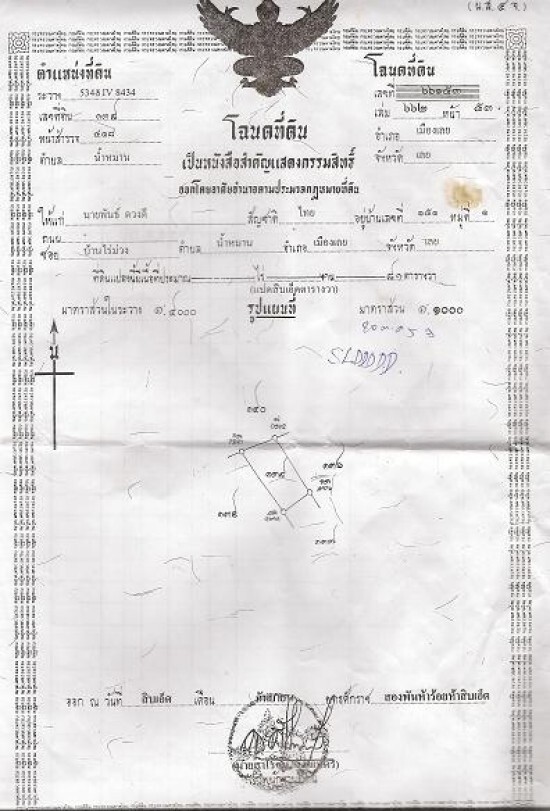 (น.ส.๔ จ.)
ตำแหน่งที่ดิน
ระวาง 5348 IV 8434
เลขที่ดิน ๑๓๙
หน้าสำรวจ ๔๑๘
ตำบล น้ำหมาน
โฉนดที่ดิน
เลขที่ ๖๖๑๕๓
เล่ม ๖๖๒ หน้า ๕๓
อำเภอ เมืองเลย
จังหวัด เลย
โฉนดที่ดิน
เป็นหนังสือสำคัญแสดงกรรมสิทธิ์
ออกโดยอาศัยอำนาจตามประมวลกฎหมายที่ดิน
ให้แก่ นายพันธ์ ดวงดี สัญชาติ ไทย อยู่บ้านเลขที่ ๑๕๑ หมู่ที่ ๑
ถนน
ซอย บ้านไร่ม่วง ตำบล น้ำหมาน อำเภอ เมืองเลย จังหวัด เลย
ที่ดินแปลงนี้มีเนื้อที่ประมาณ - ไร่ - งาน ๘๑ ตารางวา
(แปดสิบเอ็ดตารางวา)
มาตราส่วนในระวาง ๑:๔๐๐๐ รูปแผนที่ มาตราส่วน ๑:๑๐๐๐
น
๑๔๐
๑๓๙
๑๓๘
ออก ณ วันที่ สิบเอ็ด เดือน พุทธศักราช สองพันห้าร้อยห้าสิบเอ็ด